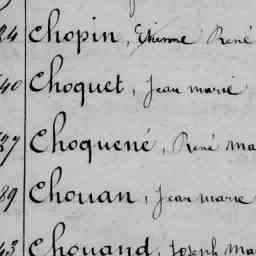 24 Chopin, Etienne René
40 Choquet, Jean marie
27 Choquené, René Ma
89 Chouan, Jean marie
43 Chouand, Joseph Ma